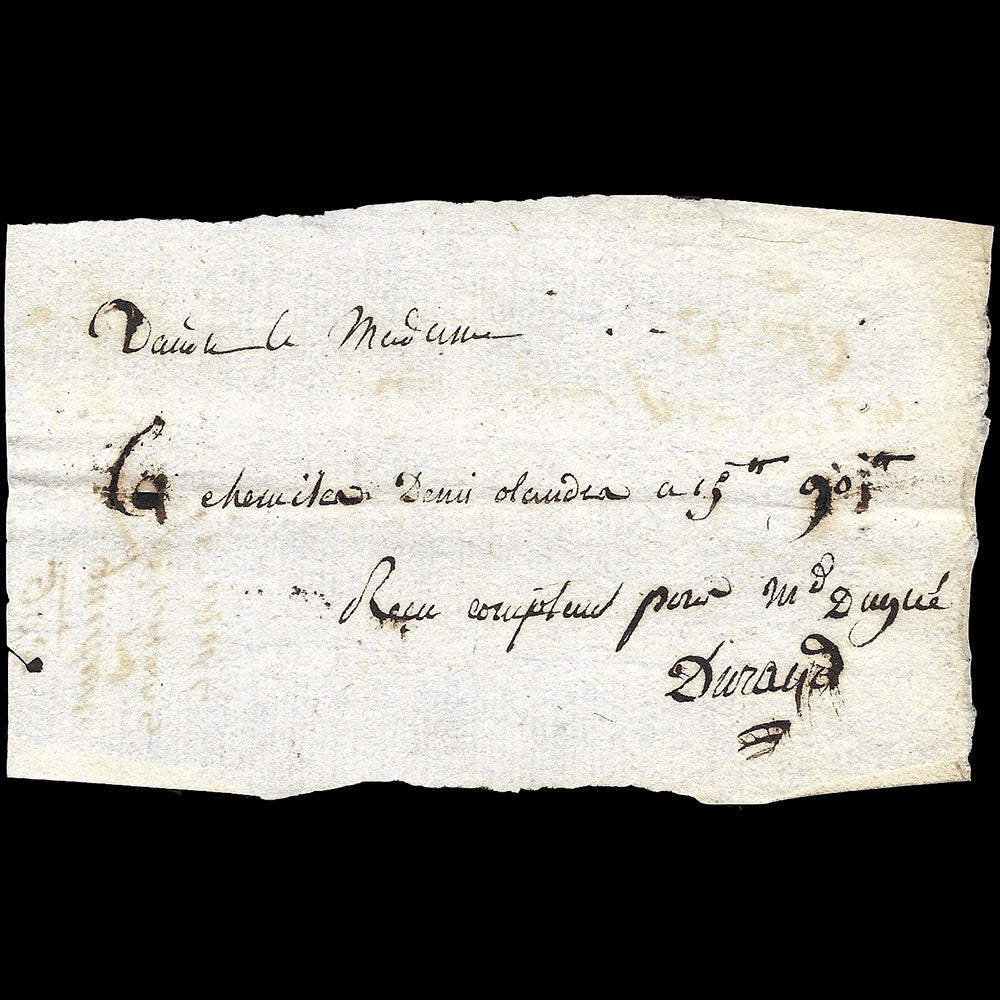 Vandu a Madame
6 chemises Demi olandes a 15ᵗᵗ 90ᵗᵗ
Recu comptant pour Mᵈ Dugué
Durand